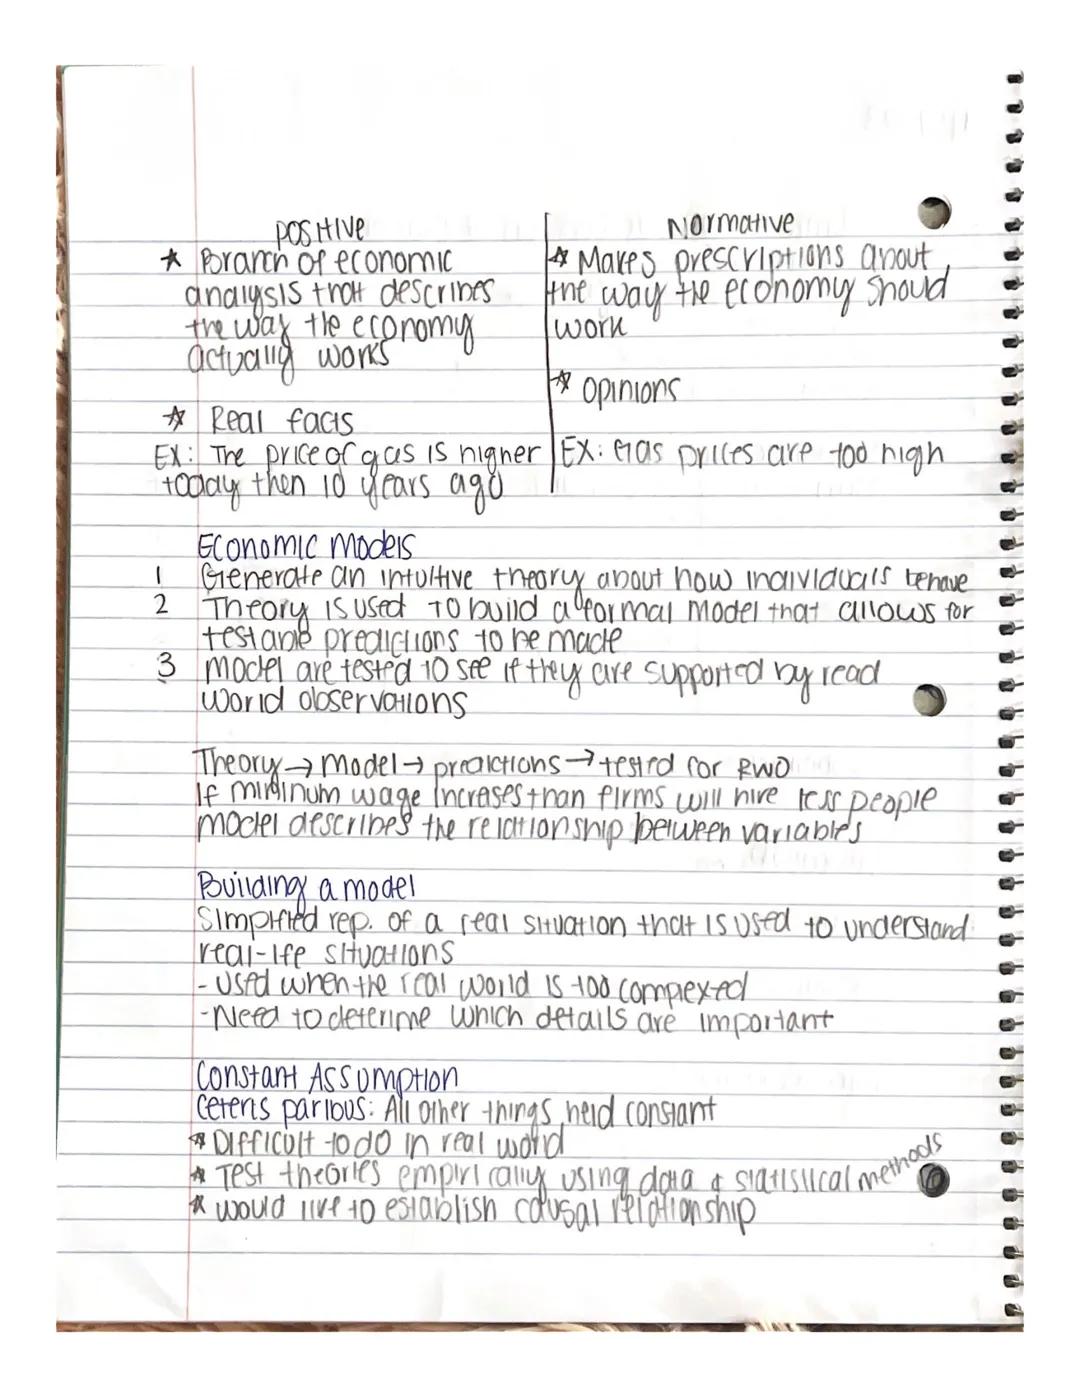 Positive
☆ Branch of economic
analysis that describes
the way the economy
actually works
☆ Real facts
EX: The price of gas is higher
today then 10 years ago
Normative
☆ Makes prescriptions about
the way the economy should
work
☆ Opinions
EX: Gas prices are too high
Economic Models
1 Generate an intuitive theory about how individuals behave
2 Theory is used to build a formal model that allows for
testable predictions to be made
3 Model are tested to see if they are supported by read
world observations
Theory → Model → predictions → tested for RWO
If mininum wage increses than firms will hire less people
model describes the relationship between variables
Building a model
Simplified rep. of a real situation that is used to understand
real-life situations
- Used when the real world is too complexed
- Need to deterime which details are important
Constant Assumption
Ceteris paribus: All other things held constant
☆ Difficult to do in real world
☆ Test theories empirically using data & statistical methods
☆ would like to establish causal relationship